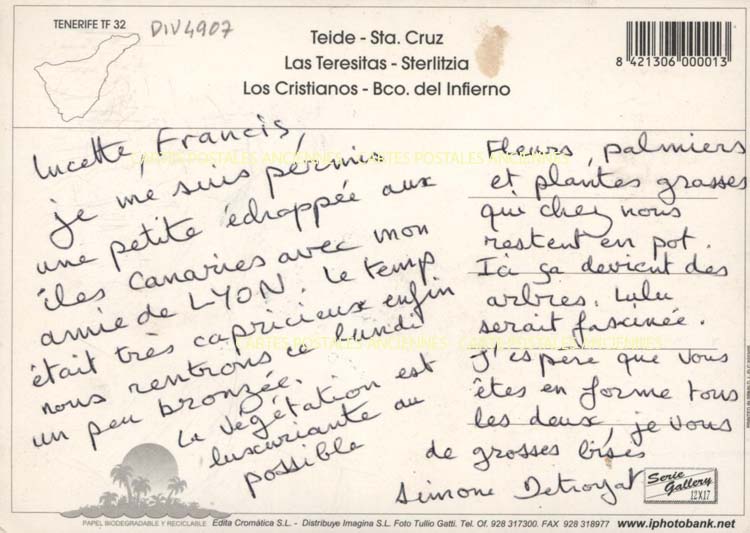 TENERIFE TF 32
DIV4907
Teide - Sta. Cruz
Las Teresitas - Sterlitzia
Los Cristianos - Bco. del Infierno
8 421306 000013
Lucette, Francis,
je me suis permis
une petite échappée aux
îles Canaries avec mon
amie de LYON. Le temps
était très capricieux enfin
nous rentrons ce lundi
un peu bronzée.
La végétation est
luxuriante au
possible
Fleurs, palmiers
et plantes grasses
qui chez nous
restent en pot.
Ici ça devient des
arbres. Lulu
serait fascinée.
J'espère que vous
êtes en forme tous
les deux, je vous
de grosses bises
Simone Detroyat
CARTES POSTALES ANCIENNES CARTES POSTALES ANCIENNES
CARTES POSTALES ANCIENNES CARTES POSTALES ANCIENNES
Serie
Gallery
12X17
PAPEL BIODEGRADABLE Y RECICLABLE
Edita Cromática S.L. - Distribuye Imagina S.L. Foto Tullio Gatti. Tel. Of. 928 317300. FAX 928 318977 www.iphotobank.net